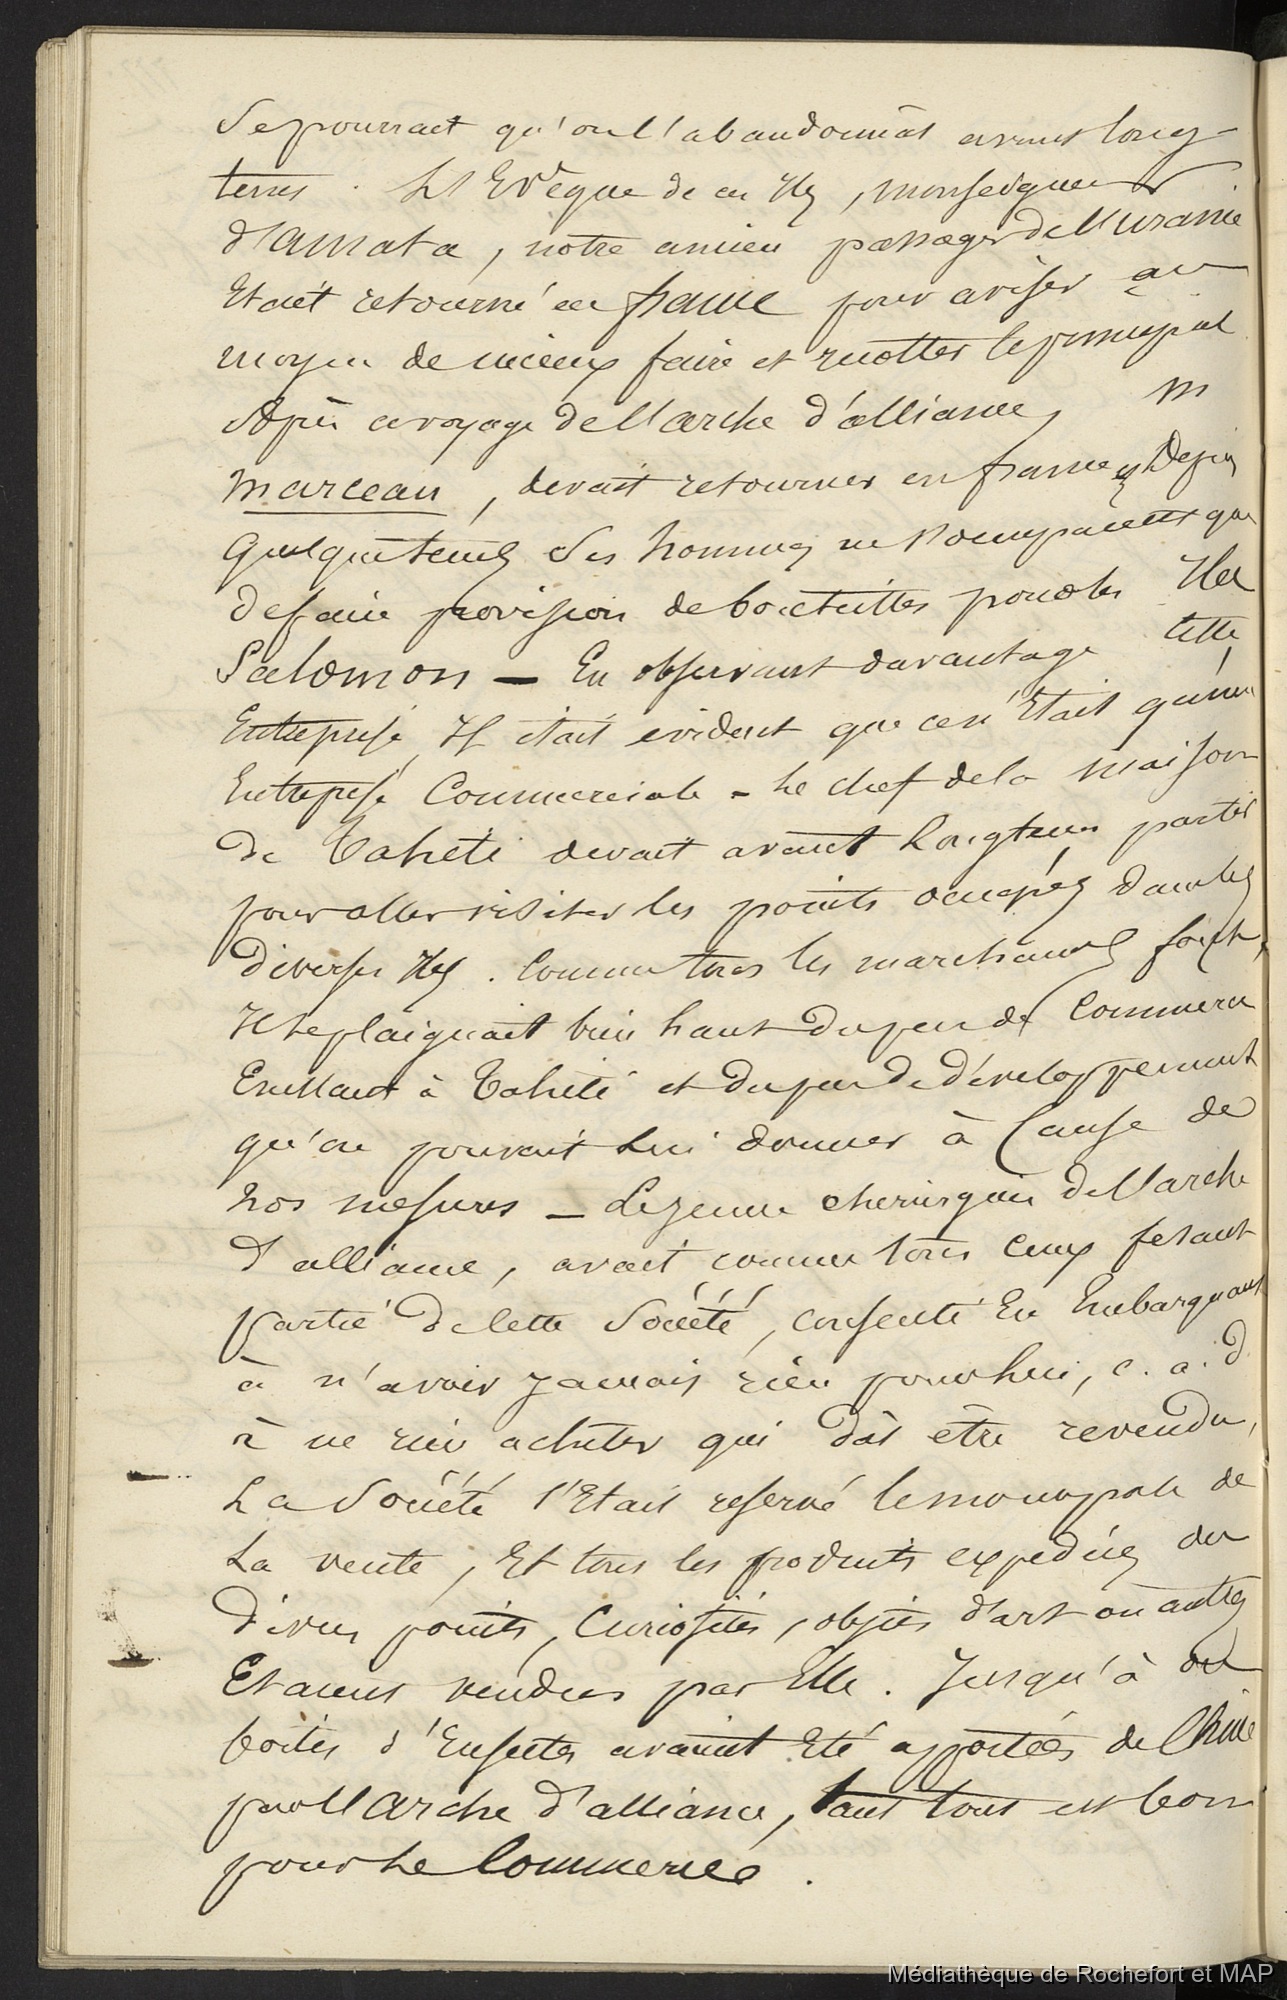 Se pourrait qu'on l'abandonnât avant long-
tems. L'Evêque de ces Iles, monseigneur
d'amata, notre ancien passager de l'uranie
Etait retourné en france pour aviser au
moyen de mieux faire et le principal
Après ce voyage de l'arche d'alliance, m
marceau, devait retourner en france, Depuis
quelques tems Ses hommes ne s'occupaient que
de faire provision de bouteilles pour les Iles
Salomon — En observant davantage cette
Entreprise, Il était évident que ce n'Etait qu'une
Entreprise Commerciale - Le chef de la maison
de Tahiti devait avant Longtems partir
pour aller visiter les points occupés dans les
diverses Iles. Comme tous les marchands font,
Il se plaignait bien haut du peu de Commerce
Existant à Tahiti et du peu de développement
qu'on pouvait Lui donner à Cause de
nos mesures — Le jeune chirurgien de l'arche
d'alliance, avait comme tous ceux fesant
partie de cette Société, consenti En Embarquant
à n'avoir jamais rien pour lui, c. a. d.
à ne rien acheter qui dût être revendu,
La Société s'Etait reservé le monopole de
La vente, Et tous les produits expediés des
divers points, Curiosités, objets d'art ou autres
Etaient vendus par Elle. Jusqu'à des
boites d'Insectes avaient Eté apportées de Chine
par l'Arche d'alliance, tant tout est bon
pour Le Commerce.
Médiathèque de Rochefort et MAP